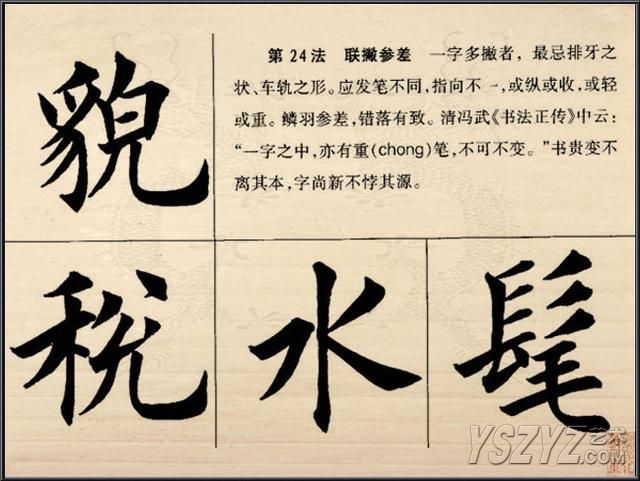 第24法 联撇参差 一字多撇者，最忌排牙之
状、车轨之形。应发笔不同，指向不一，或纵或收，或轻
或重。鳞羽参差，错落有致。清冯武《书法正传》中云：
“一字之中，亦有重(chong)笔，不可不变。”书贵变不
离其本，字尚新不悖其源。
貌
税 水 髦
YSZYZ艺术
.com